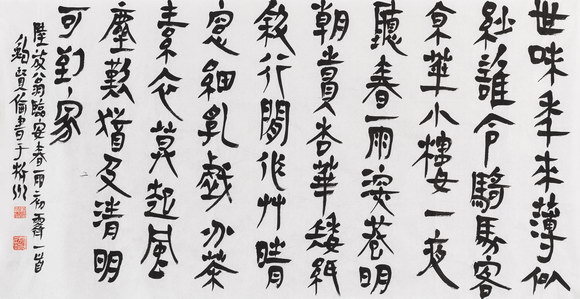 世味年來薄似
紗誰令騎馬客
京華小樓一夜
聽春雨深巷明
朝賣杏華矮紙
斜行閒作艸晴
窗細乳戲分茶
素衣莫起風
塵歎猶及清明
可到家
陸放翁臨安春雨初霽一首
鮑賢倫書于杭州